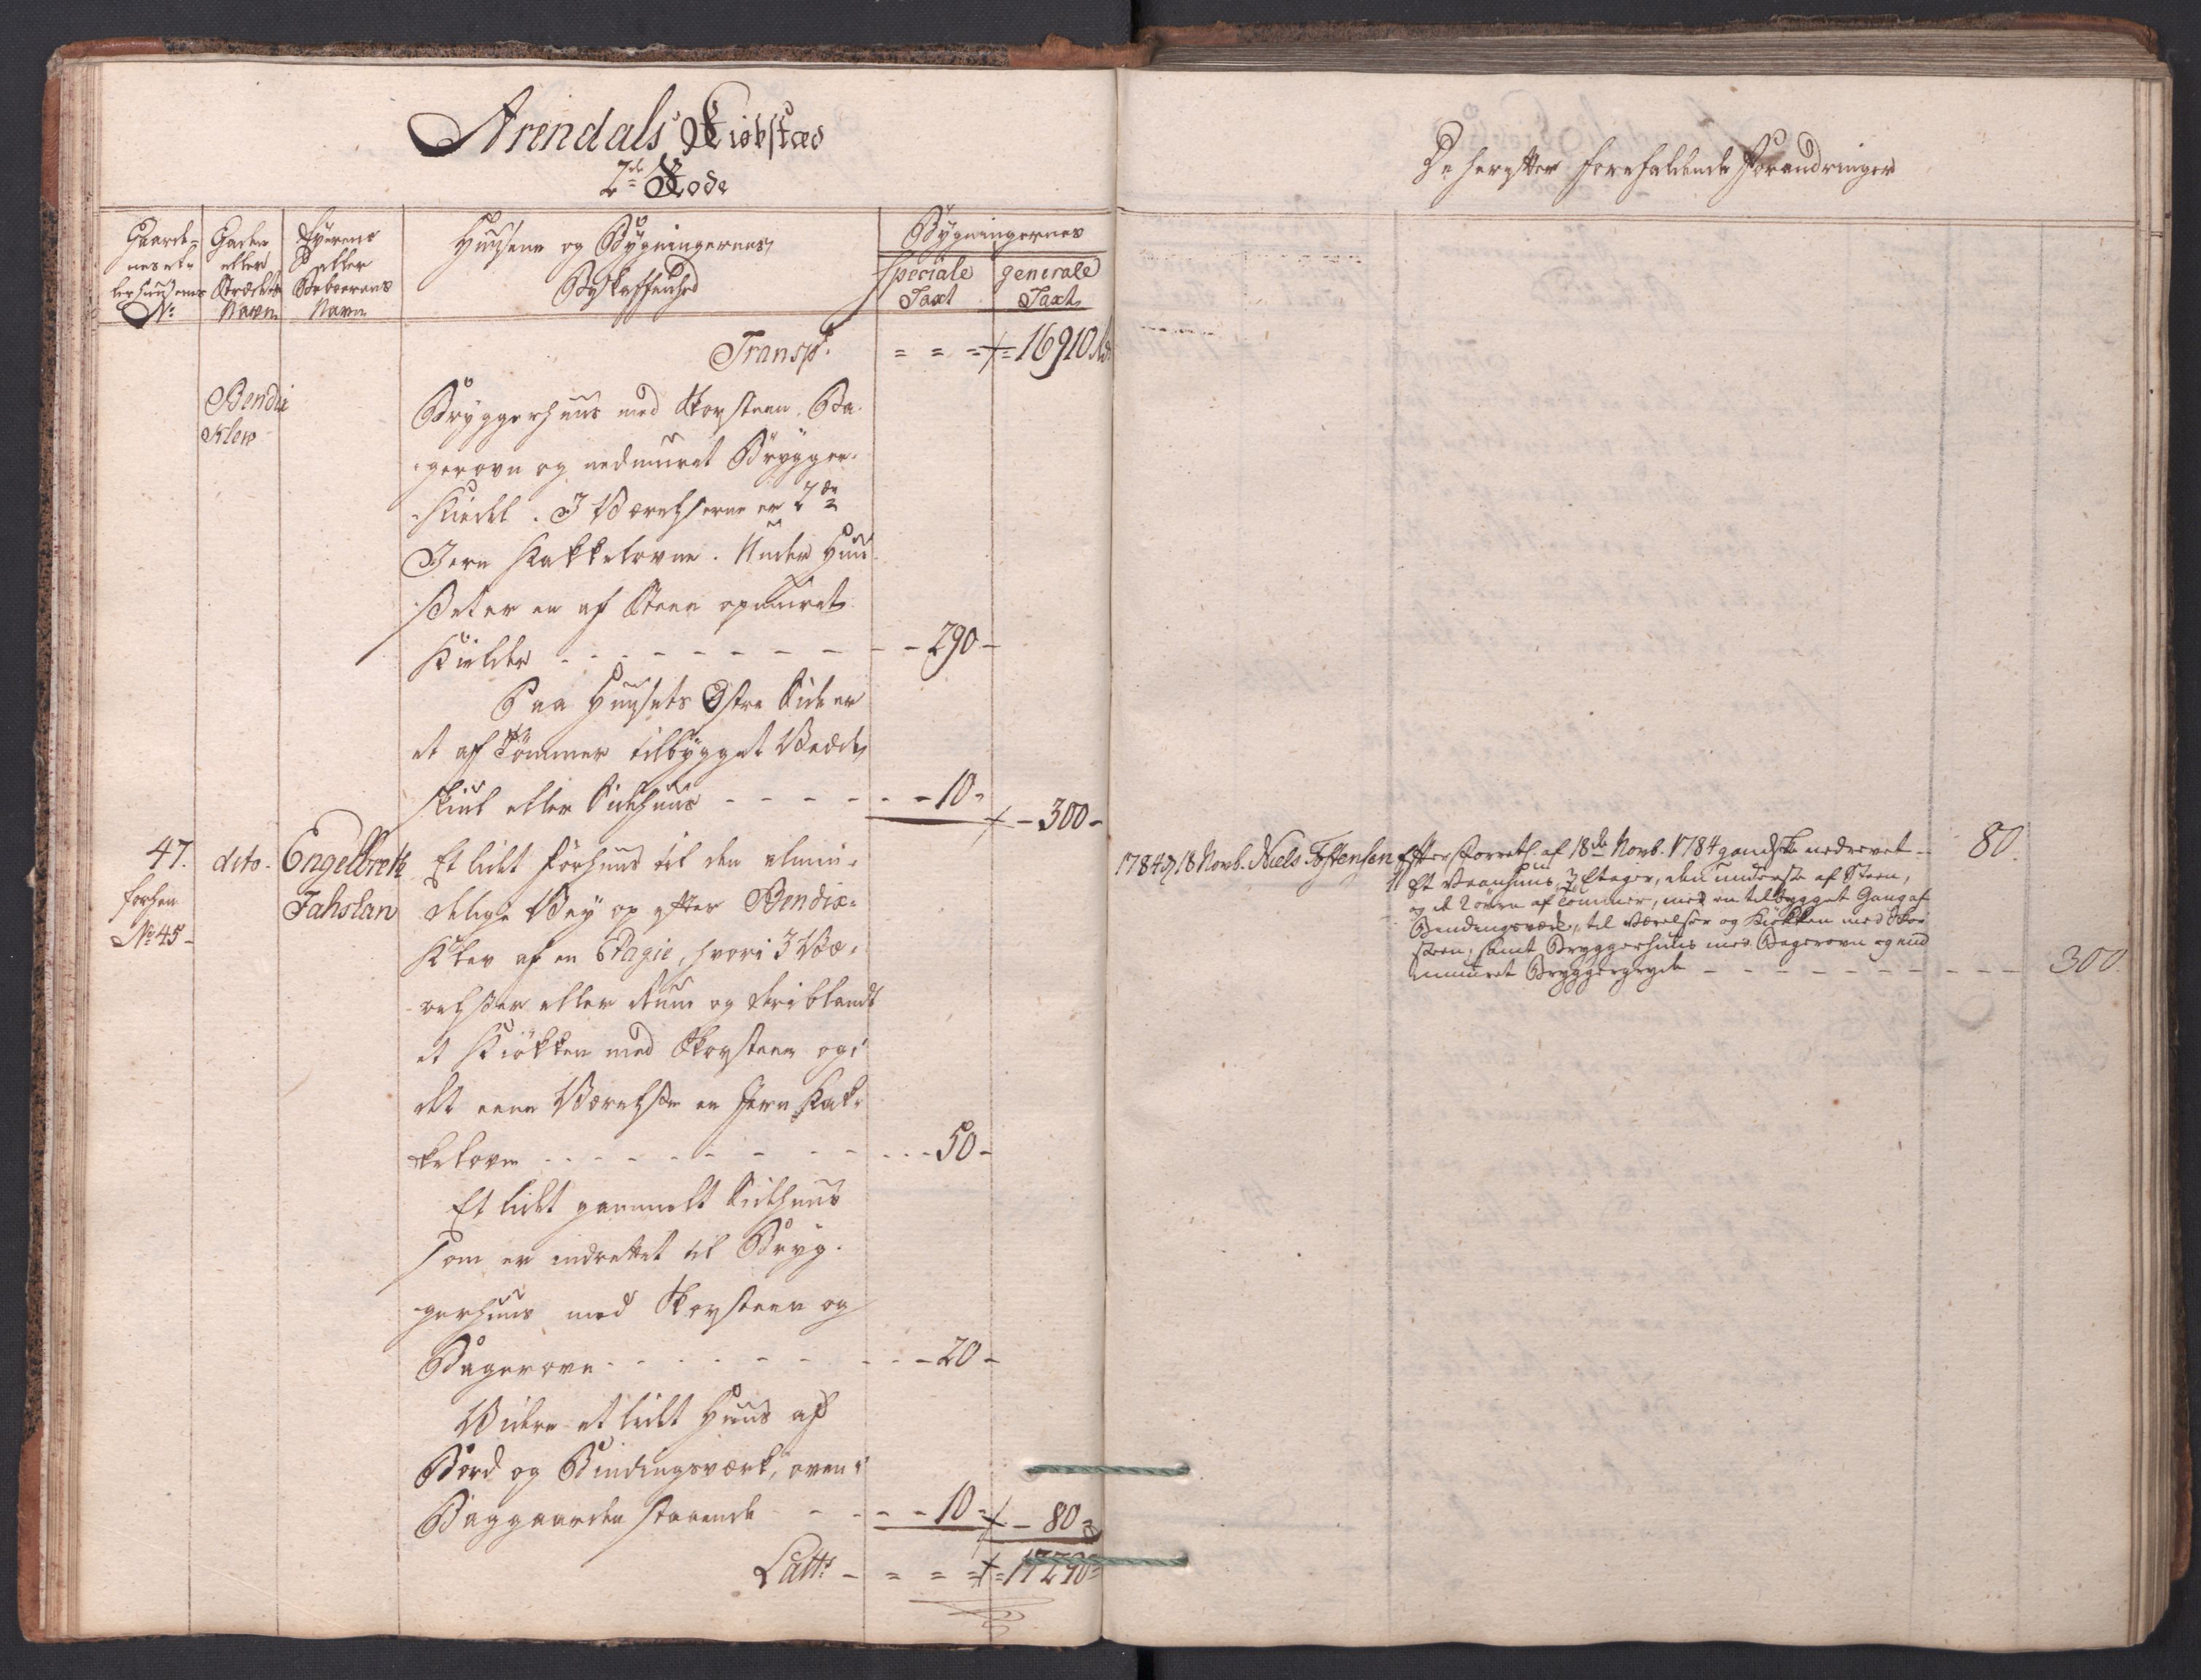 Arendals Kiøbstæd
2de Rode
Gaarde-
nes el-
ler Huusenes
No:
Gaden
eller
Strædets
Navn
Eyerens
eller
Beboerens
Navn
Huusene og Bygningernes
Beskaffenhed
Bygningernes
speciale
Taxt
generale
Taxt
Transpt. = = = 16910 Rd
Bendix
Klew
Bryggerhuus med Skorsteen, Ba-
gerovn og nedmuret Brygger-
Kiedel. I Værelserne er 2de
Jern Kakkelovne. Under Huu-
set er en af Steen opmuret
Kielder - - - - - - - 290 -
Paa Huusets Østre Side er
et af Tømmer tilbygget Vedde
skiul eller Sidehuus - - - - - 10 -
- 300 -
47.
forhen
No 45 -
dito -
Engelbreth
Fahslan
Et lidet Forhuus til den almin-
delige Vey op efter Bendix-
Klev af en Etagie, hvori 3 Væ-
relser eller Rum og deriblandt
et Kiøkken med Skorsteen og i
det eene Værelse en Jern Kak-
kelovn - - - - - - - 50 -
Et lidet gammelt Sidehuus
som er indrettet til Bryg-
gerhuus med Skorsteen og
Bagerovn - - - - - - 20 -
Videre et lidet Huus af
Bord og Bindingsværk, oven i
Baggaarden staaende - - - - 10 - - 80 -
Latts - = = = 17290 =
De herefter forefaldende Forandringer
1784 d 18 Novb. Niels Tostensen
Efter Forretn. af 18de Novb. 1784 gandske nedrevet - 80.
Et Vaanhuus, 3 Etager, den underste af Steen,
og de 2 øvre af Tømmer, med en tilbygget Gang af
Bindingsværk, til Værelser og Kiøkken med Skor
steen, samt Bryggerhuus med Bagerovn og ind
muuret Bryggergryde - - - - - - - - 300.